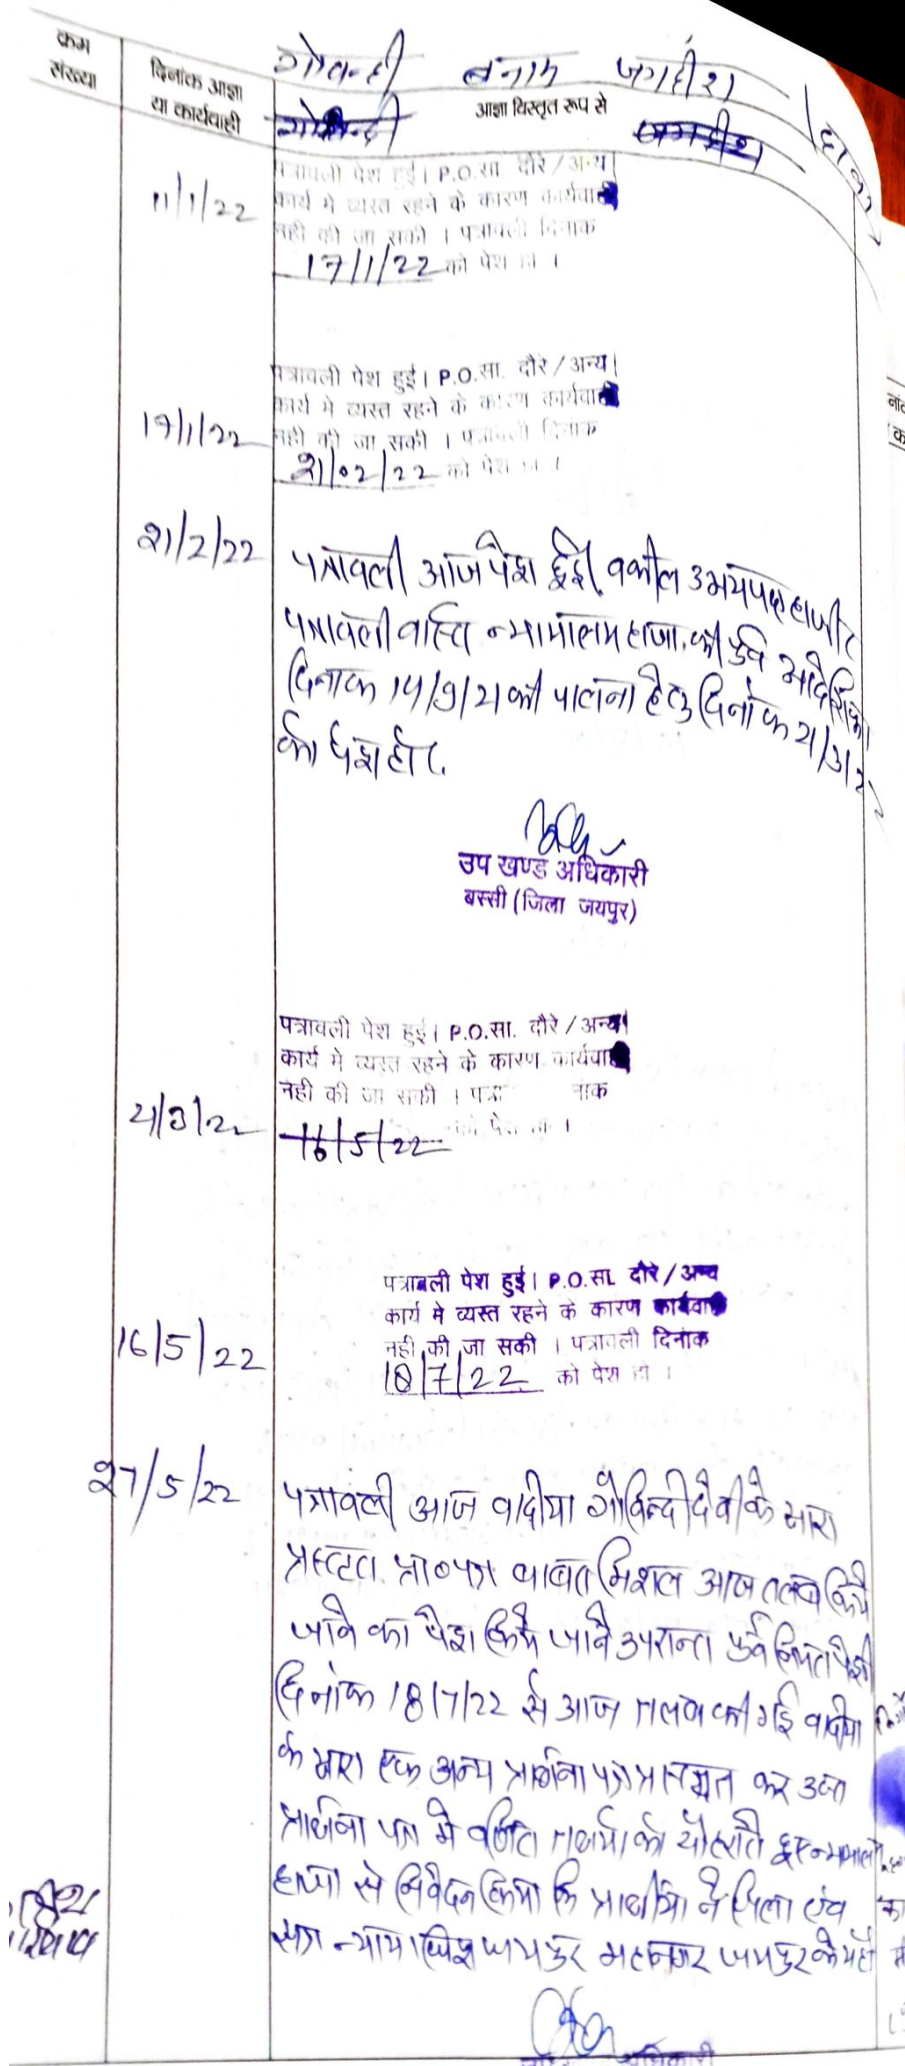 क्रम
संख्या
दिनांक आज्ञा
या कार्यवाही
गोवन्दी बनाम जगदीश
आज्ञा विस्तृत रूप से
11/1/22
पत्रावली पेश हुई। P.O.सा. दौरे / अन्य
कार्य मे व्यस्त रहने के कारण कार्यवाही
नही की जा सकी । पत्रावली दिनाक
17/1/22 को पेश हो ।
17/1/22
पत्रावली पेश हुई। P.O.सा. दौरे / अन्य
कार्य मे व्यस्त रहने के कारण कार्यवाही
नही की जा सकी । पत्रावली दिनाक
21/02/22 को पेश हो ।
21/2/22
पत्रावली आज पेश हुई, वकील उभयपक्ष हाजीर
पत्रावली वास्ते न्यायालय हाजा की पूर्व आदेशिका
दिनांक 14/9/21 की पालना हेतु दिनांक 21/3/2
को पेश हो।
उप खण्ड अधिकारी
बस्सी (जिला जयपुर)
पत्रावली पेश हुई। P.O.सा. दौरे / अन्य
कार्य मे व्यस्त रहने के कारण कार्यवाही
नही की जा सकी । पत्रा नाक
21/3/22
16/5/22 को पेश हो ।
पत्रावली पेश हुई। P.O.सा. दौरे / अन्य
कार्य मे व्यस्त रहने के कारण कार्यवाही
नही की जा सकी । पत्रावली दिनाक
16/5/22
18/7/22 को पेश हो ।
27/5/22
पत्रावली आज वादीया गोविन्दी देवी के द्वारा
प्रस्तुत प्रा०पत्र बाबत मिशल आज तलब किये
जावे का पेश किये जावे उपरान्त पूर्व नियत पेशी
दिनांक 18/7/22 से आज तलब की गई वादीया
के द्वारा एक अन्य प्रार्थना पत्र प्रस्तुत कर उक्त
प्रार्थना पत्र मे वर्णित तथ्यो को दोहराते हुए न्यायालय
हाजा से निवेदन किया कि प्रार्थीया ने जिला एंव
सत्र न्यायाधिश जयपुर महानगर जयपुर के यहाँ
अधिकारी